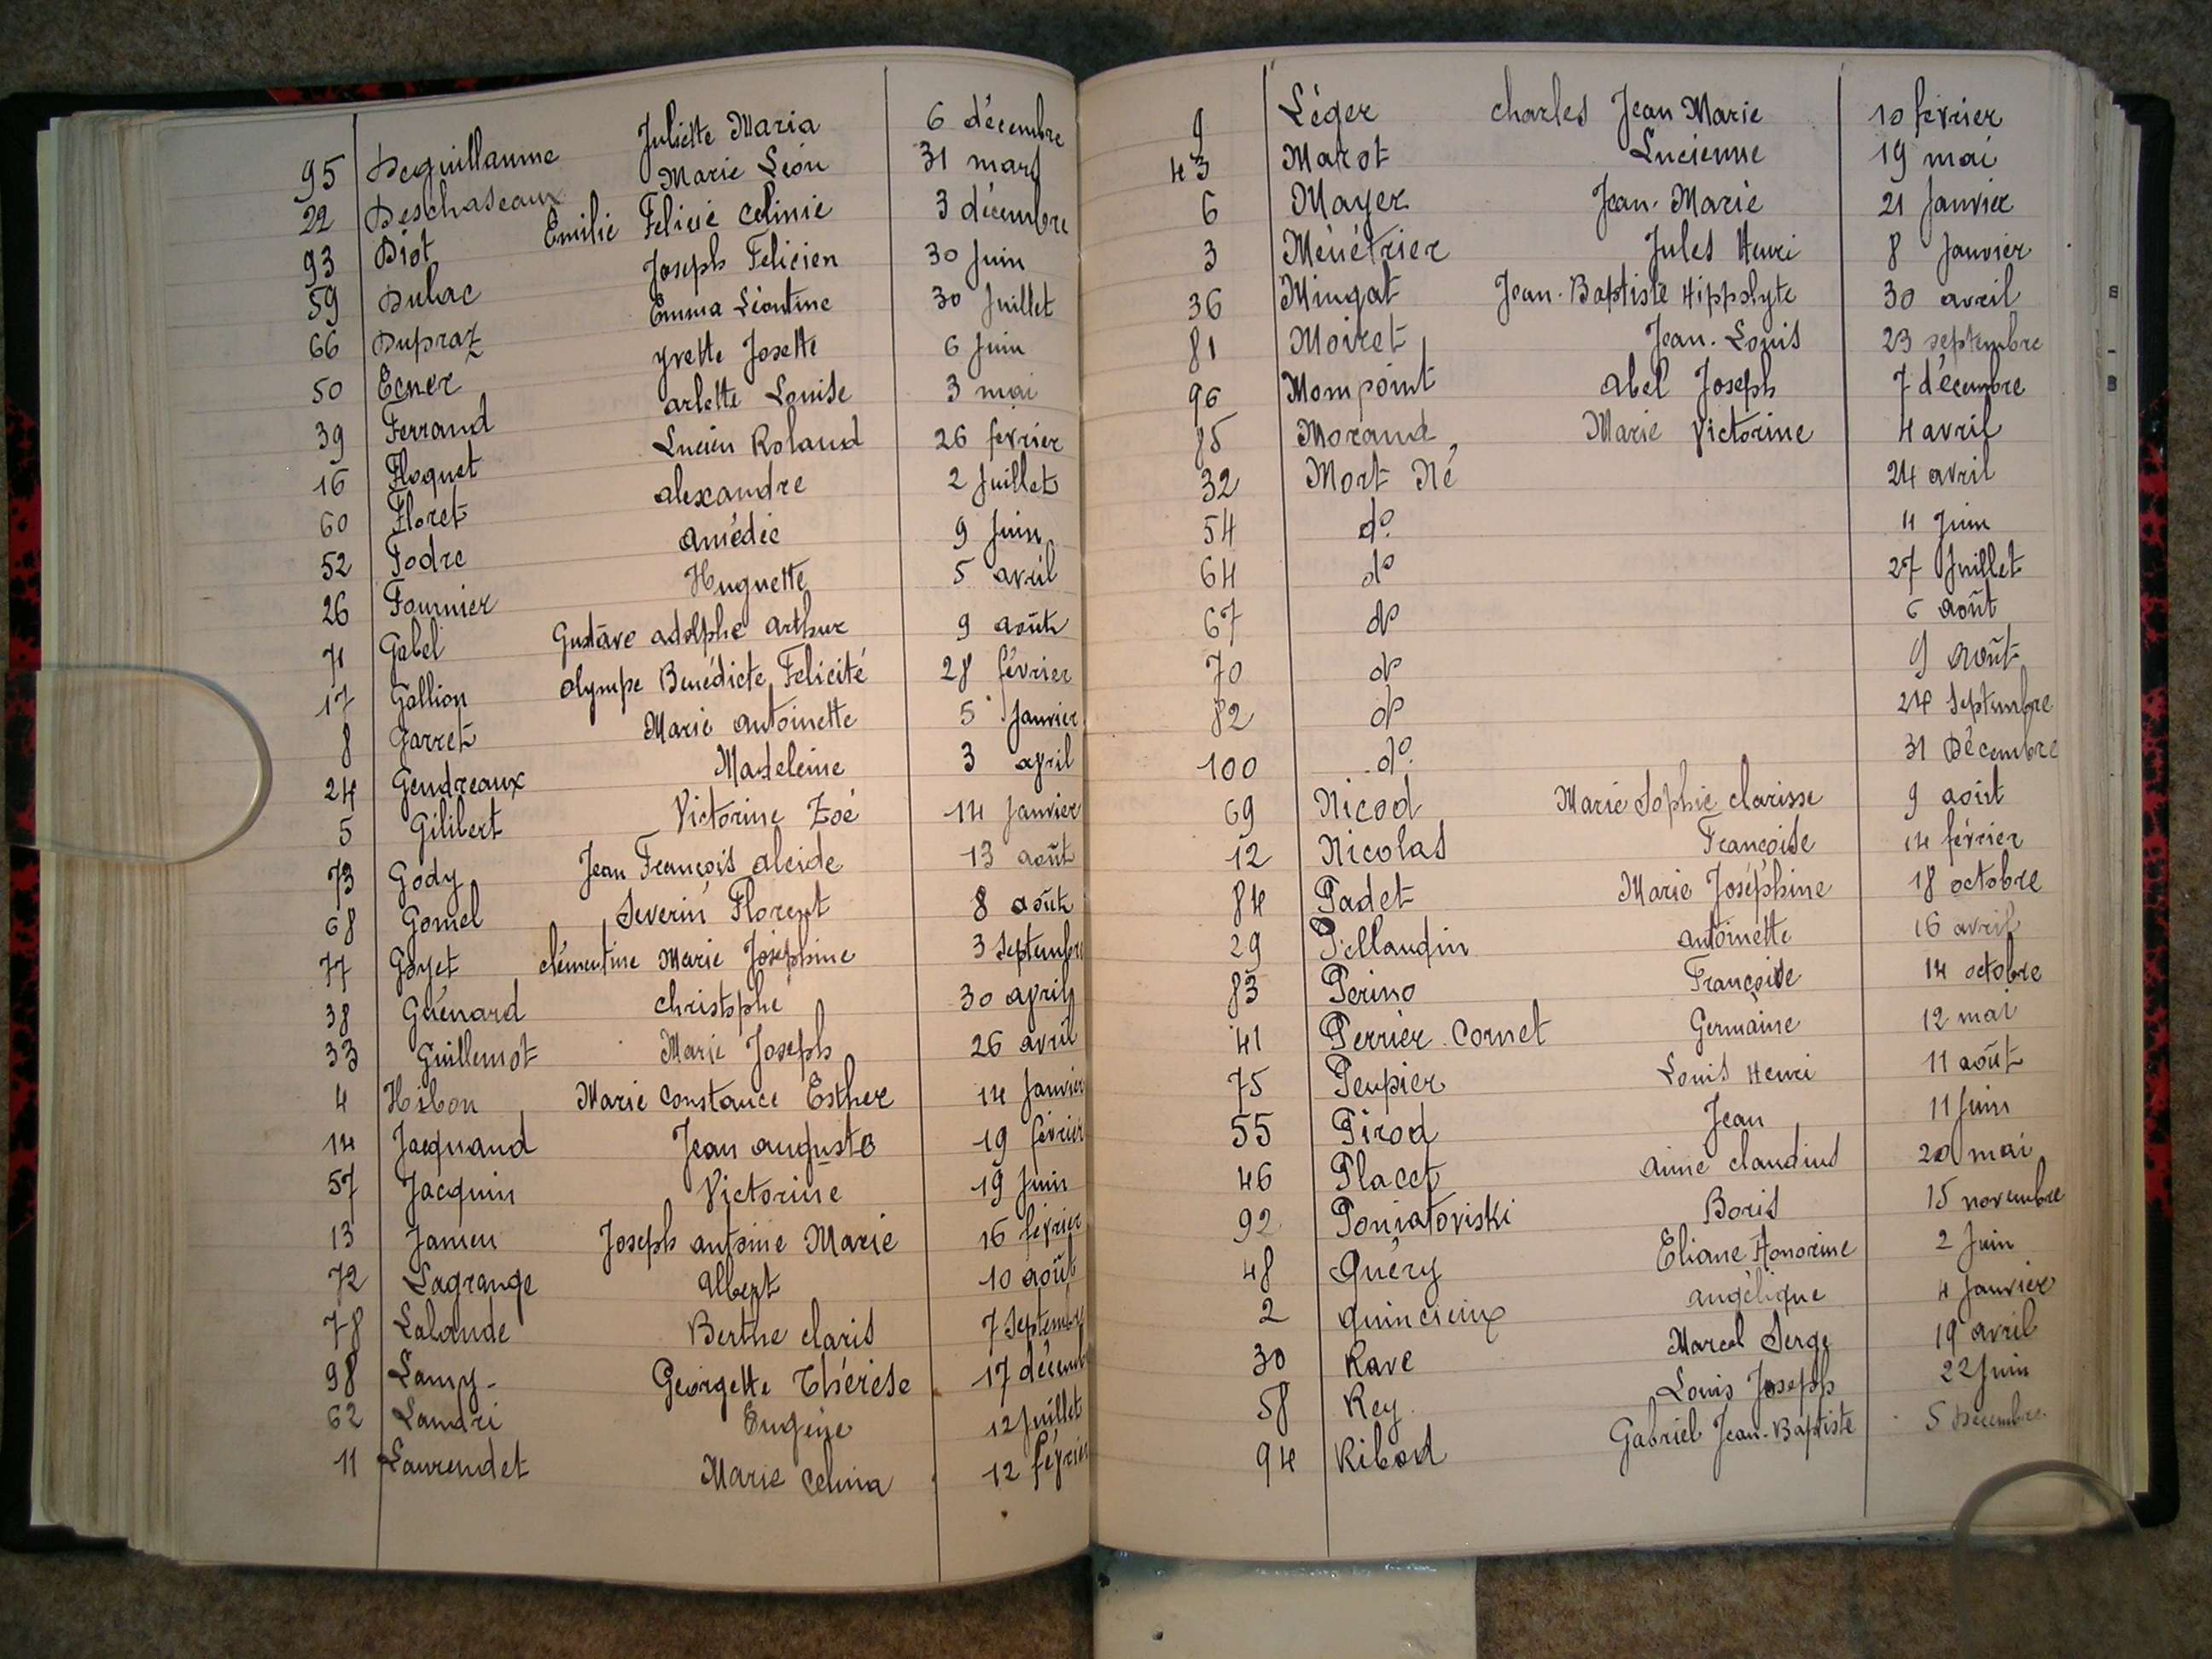 95 Deguillaume Juliette Maria 6 décembre
22 Deschaseaux Marie Léon 31 mars
93 Diot Emilie Felicie Celinie 3 décembre
59 Dulac Joseph Felicien 30 Juin
66 Dupraz Emma Léontine 30 Juillet
50 Ecner Yvette Josette 6 Juin
39 Ferrand arlette Louise 3 mai
16 Floquet Lucien Roland 26 février
60 Floret alexandre 2 Juillet
52 Fodre amédée 9 Juin
26 Fournier Huguette 5 avril
71 Gabel Gustave adolphe arthur 9 août
17 Gallion olympe Benédicte Felicité 28 février
8 Garret Marie antoinette 5 Janvier
24 Gendreaux Madeleine 3 avril
5 Gilibert Victorine Zoé 14 Janvier
73 Gody Jean François alcide 13 août
68 Gomel Severin Florent 8 août
77 Goyet clémentine Marie Joséphine 3 Septembre
38 Guénard christophe 30 avril
33 Guillemot Marie Joseph 26 avril
4 Hibon Marie Constance Esther 14 Janvier
14 Jacquand Jean auguste 19 février
57 Jacquin Victorine 19 Juin
13 Jamen Joseph antoine Marie 16 février
72 Lagrange Albert 10 août
78 Lalande Berthe claris 7 Septembre
98 Lamy Georgette Thérèse 17 décemb
62 Landri Eugène 12 Juillet
11 Laurendet Marie Celina 12 février
9 Léger charles Jean Marie 10 février
43 Marot Lucienne 19 mai
6 Mayer Jean-Marie 21 Janvier
3 Ménétrier Jules Henri 8 Janvier
36 Mingat Jean-Baptiste Hippolyte 30 avril
81 Moiret Jean-Louis 23 septembre
96 Mompoint abel Joseph 7 décembre
85 Morand Marie Victorine 4 avril
32 Mort Né 24 avril
54 do 11 Juin
64 do 27 Juillet
67 do 6 août
70 do 9 Août
82 do 24 Septembre
100 do 31 Décembre
69 Nicod Marie Sophie clarisse 9 août
12 Nicolas Françoise 14 février
84 Padet Marie Joséphine 18 octobre
29 Pellaudin antoinette 16 avril
83 Perino Françoise 14 octobre
41 Perrier. Cornet Germaine 12 mai
75 Peupier Louis Henri 11 août
55 Pirod Jean 11 Juin
46 Placet aimé claudius 20 mai
92 Poniatoviski Boris 15 novembre
48 Quéry Eliane Honorine 2 Juin
2 quincieux angélique 4 Janvier
30 Rave Marcel Serge 19 avril
58 Rey Louis Joseph 22 Juin
94 Ribod Gabriel Jean-Baptiste 5 Décembre